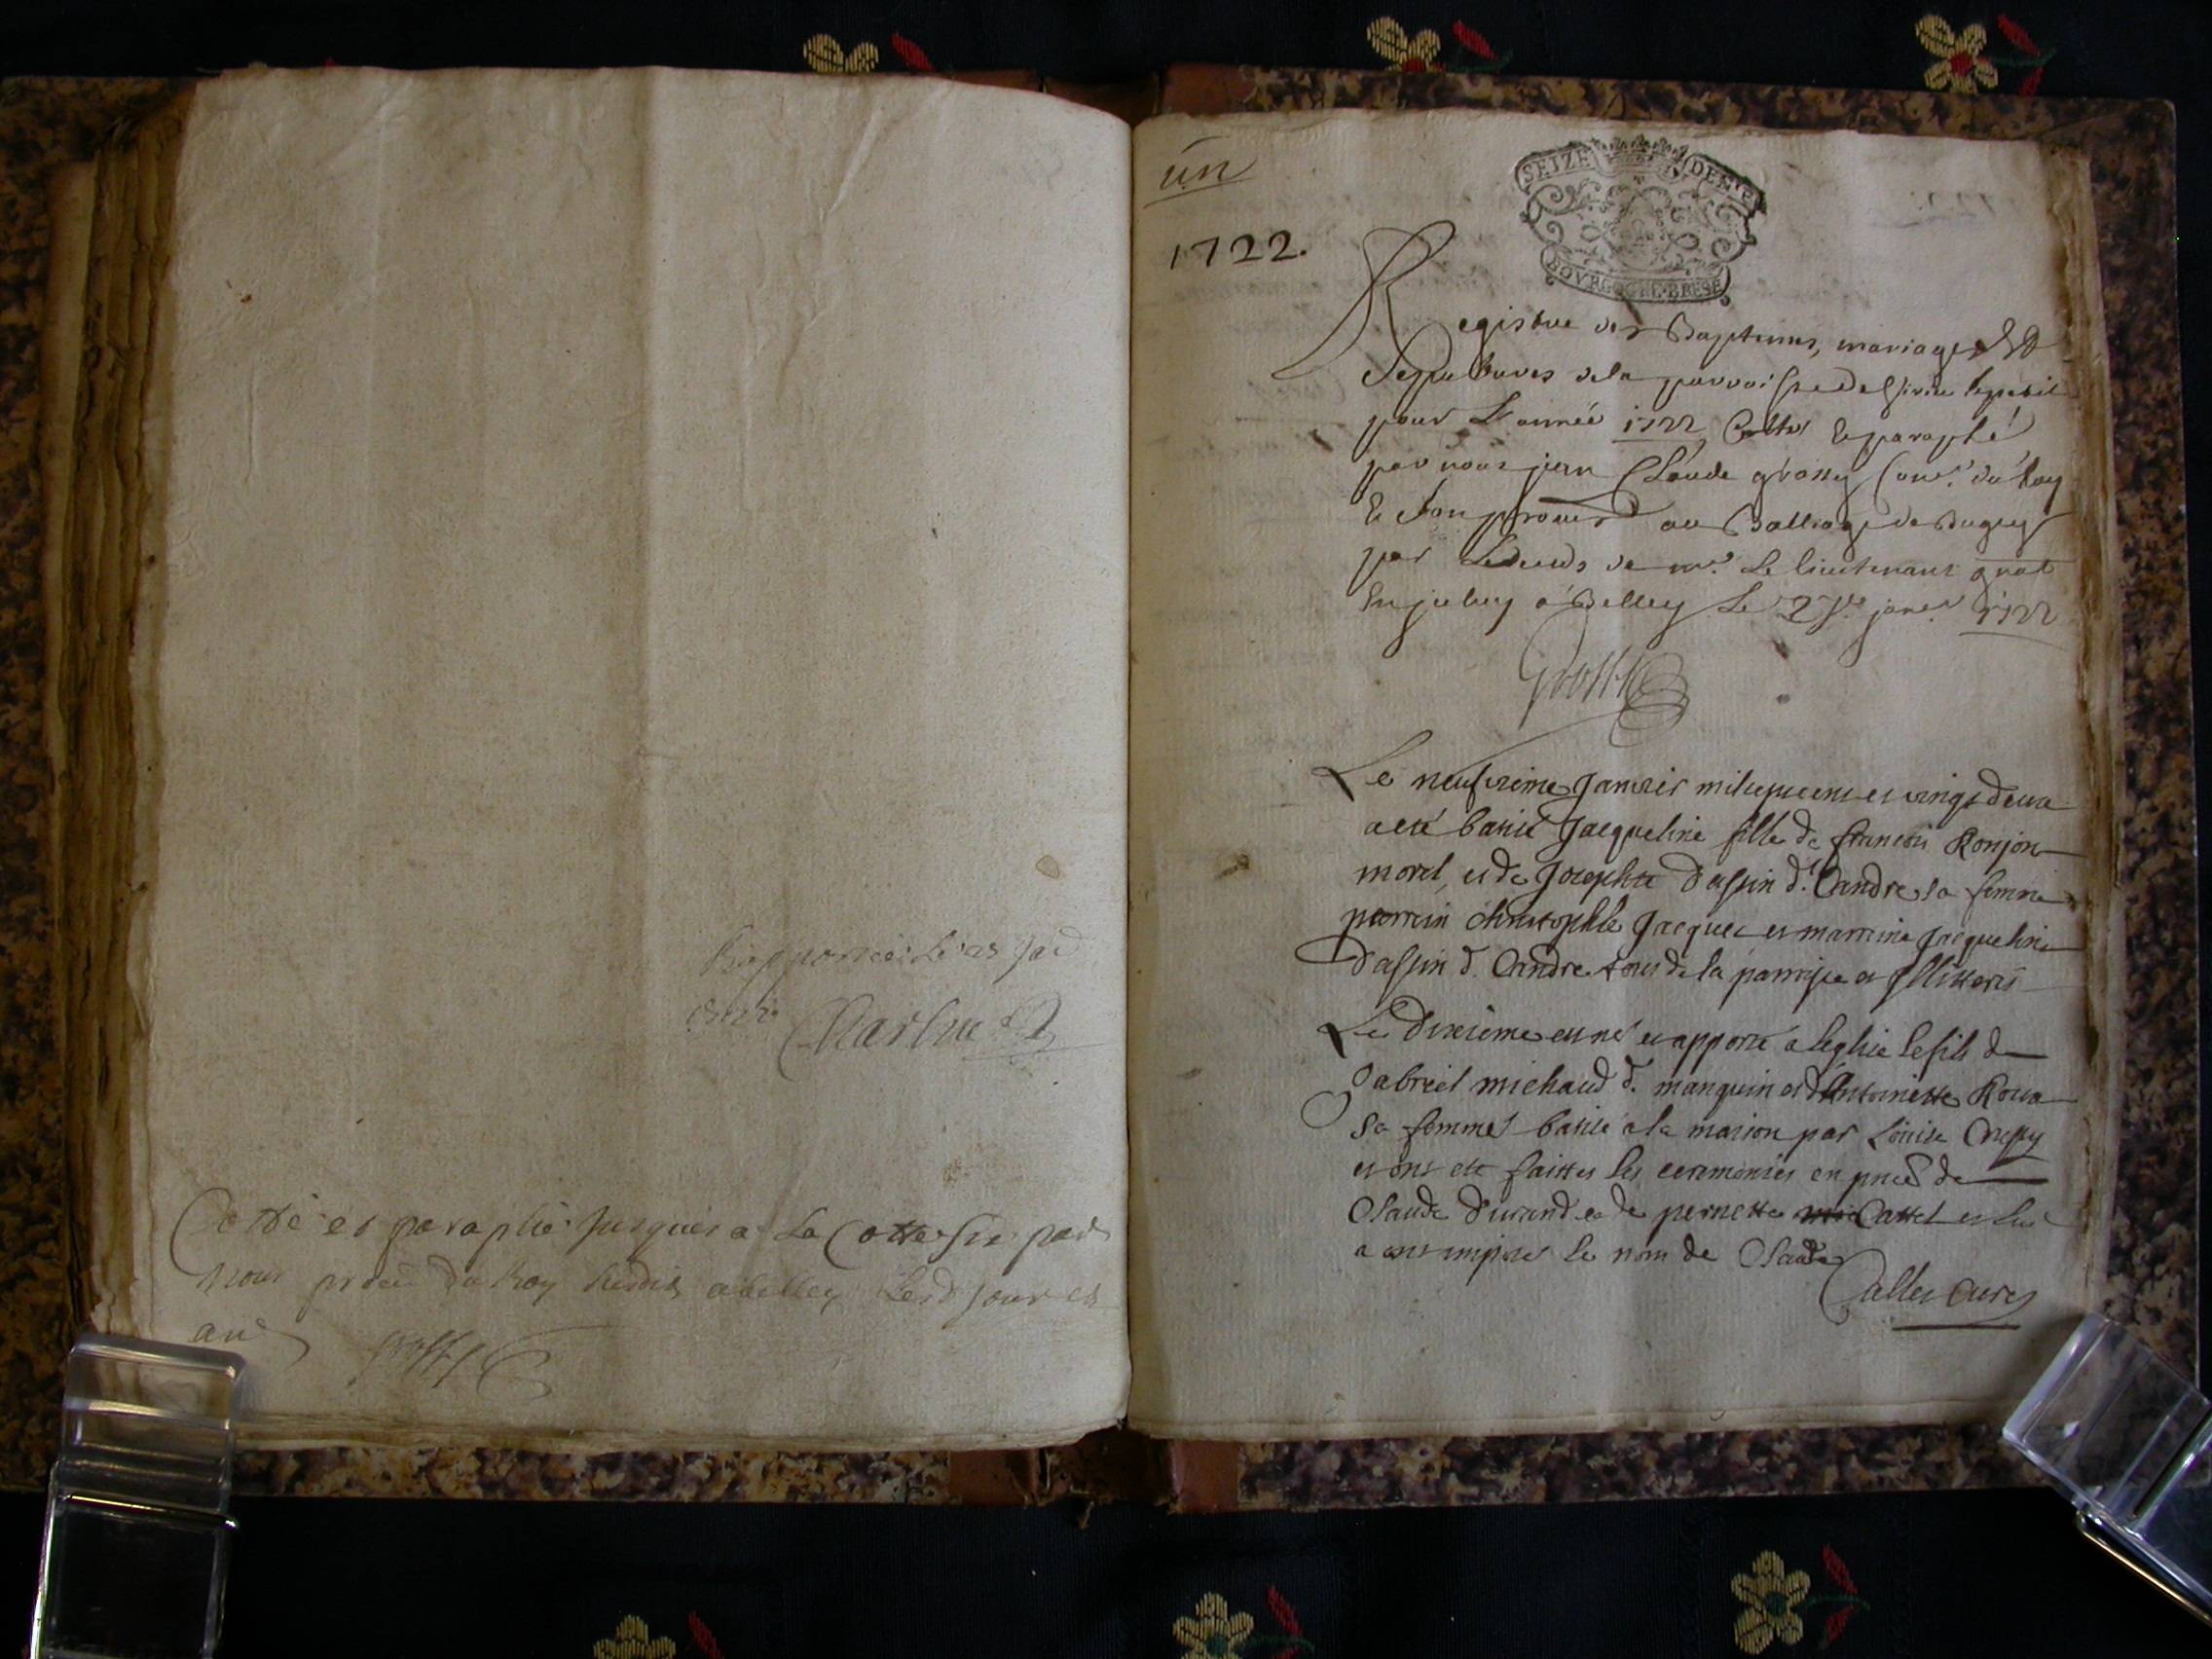 Rapporté le
Cotté et paraphé jusques a la Cotte six par
nous du Roy susdit a belley led jour et
an
un
SEIZE DEN'RS
1722.
BOVRGOGNE·BRESE
Registre des Baptemes, mariages et
Sepultures de la parroisse de le petit
pour L'année 1722 Cotté et paraphé
par nous jean Claude grossy Conr. du Roy
et son procureur au Balliage de Bugey
par de mr. Le lieutenant gnal
a Belley Le janer 1722
Grossy
Le neufvieme Janvier mil sept cent et vingt deux
a eté batisé Jacqueline fille de francois Ronjon
morel, et de Josephte Dassin d. Andre sa femme
parrein christophle Jacques et marraine Jacqueline
Dassin d. Andre tous de la parroisse et Illitterés
Le Dixieme est né et apporté a leglise le fils de
Gabriel michaud d. manquin et d'Antoinette Roux
sa femme batisé a la maison par Louise Crussy
et ont eté faittes les ceremonies en prnce de
Claude Durand et de pernette Cattel et luy
a ont imposé le nom de Claude
Curé